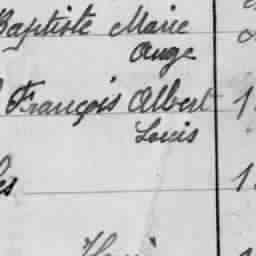 Baptiste Marie
Ange
François Albert 1
Louis
es 1